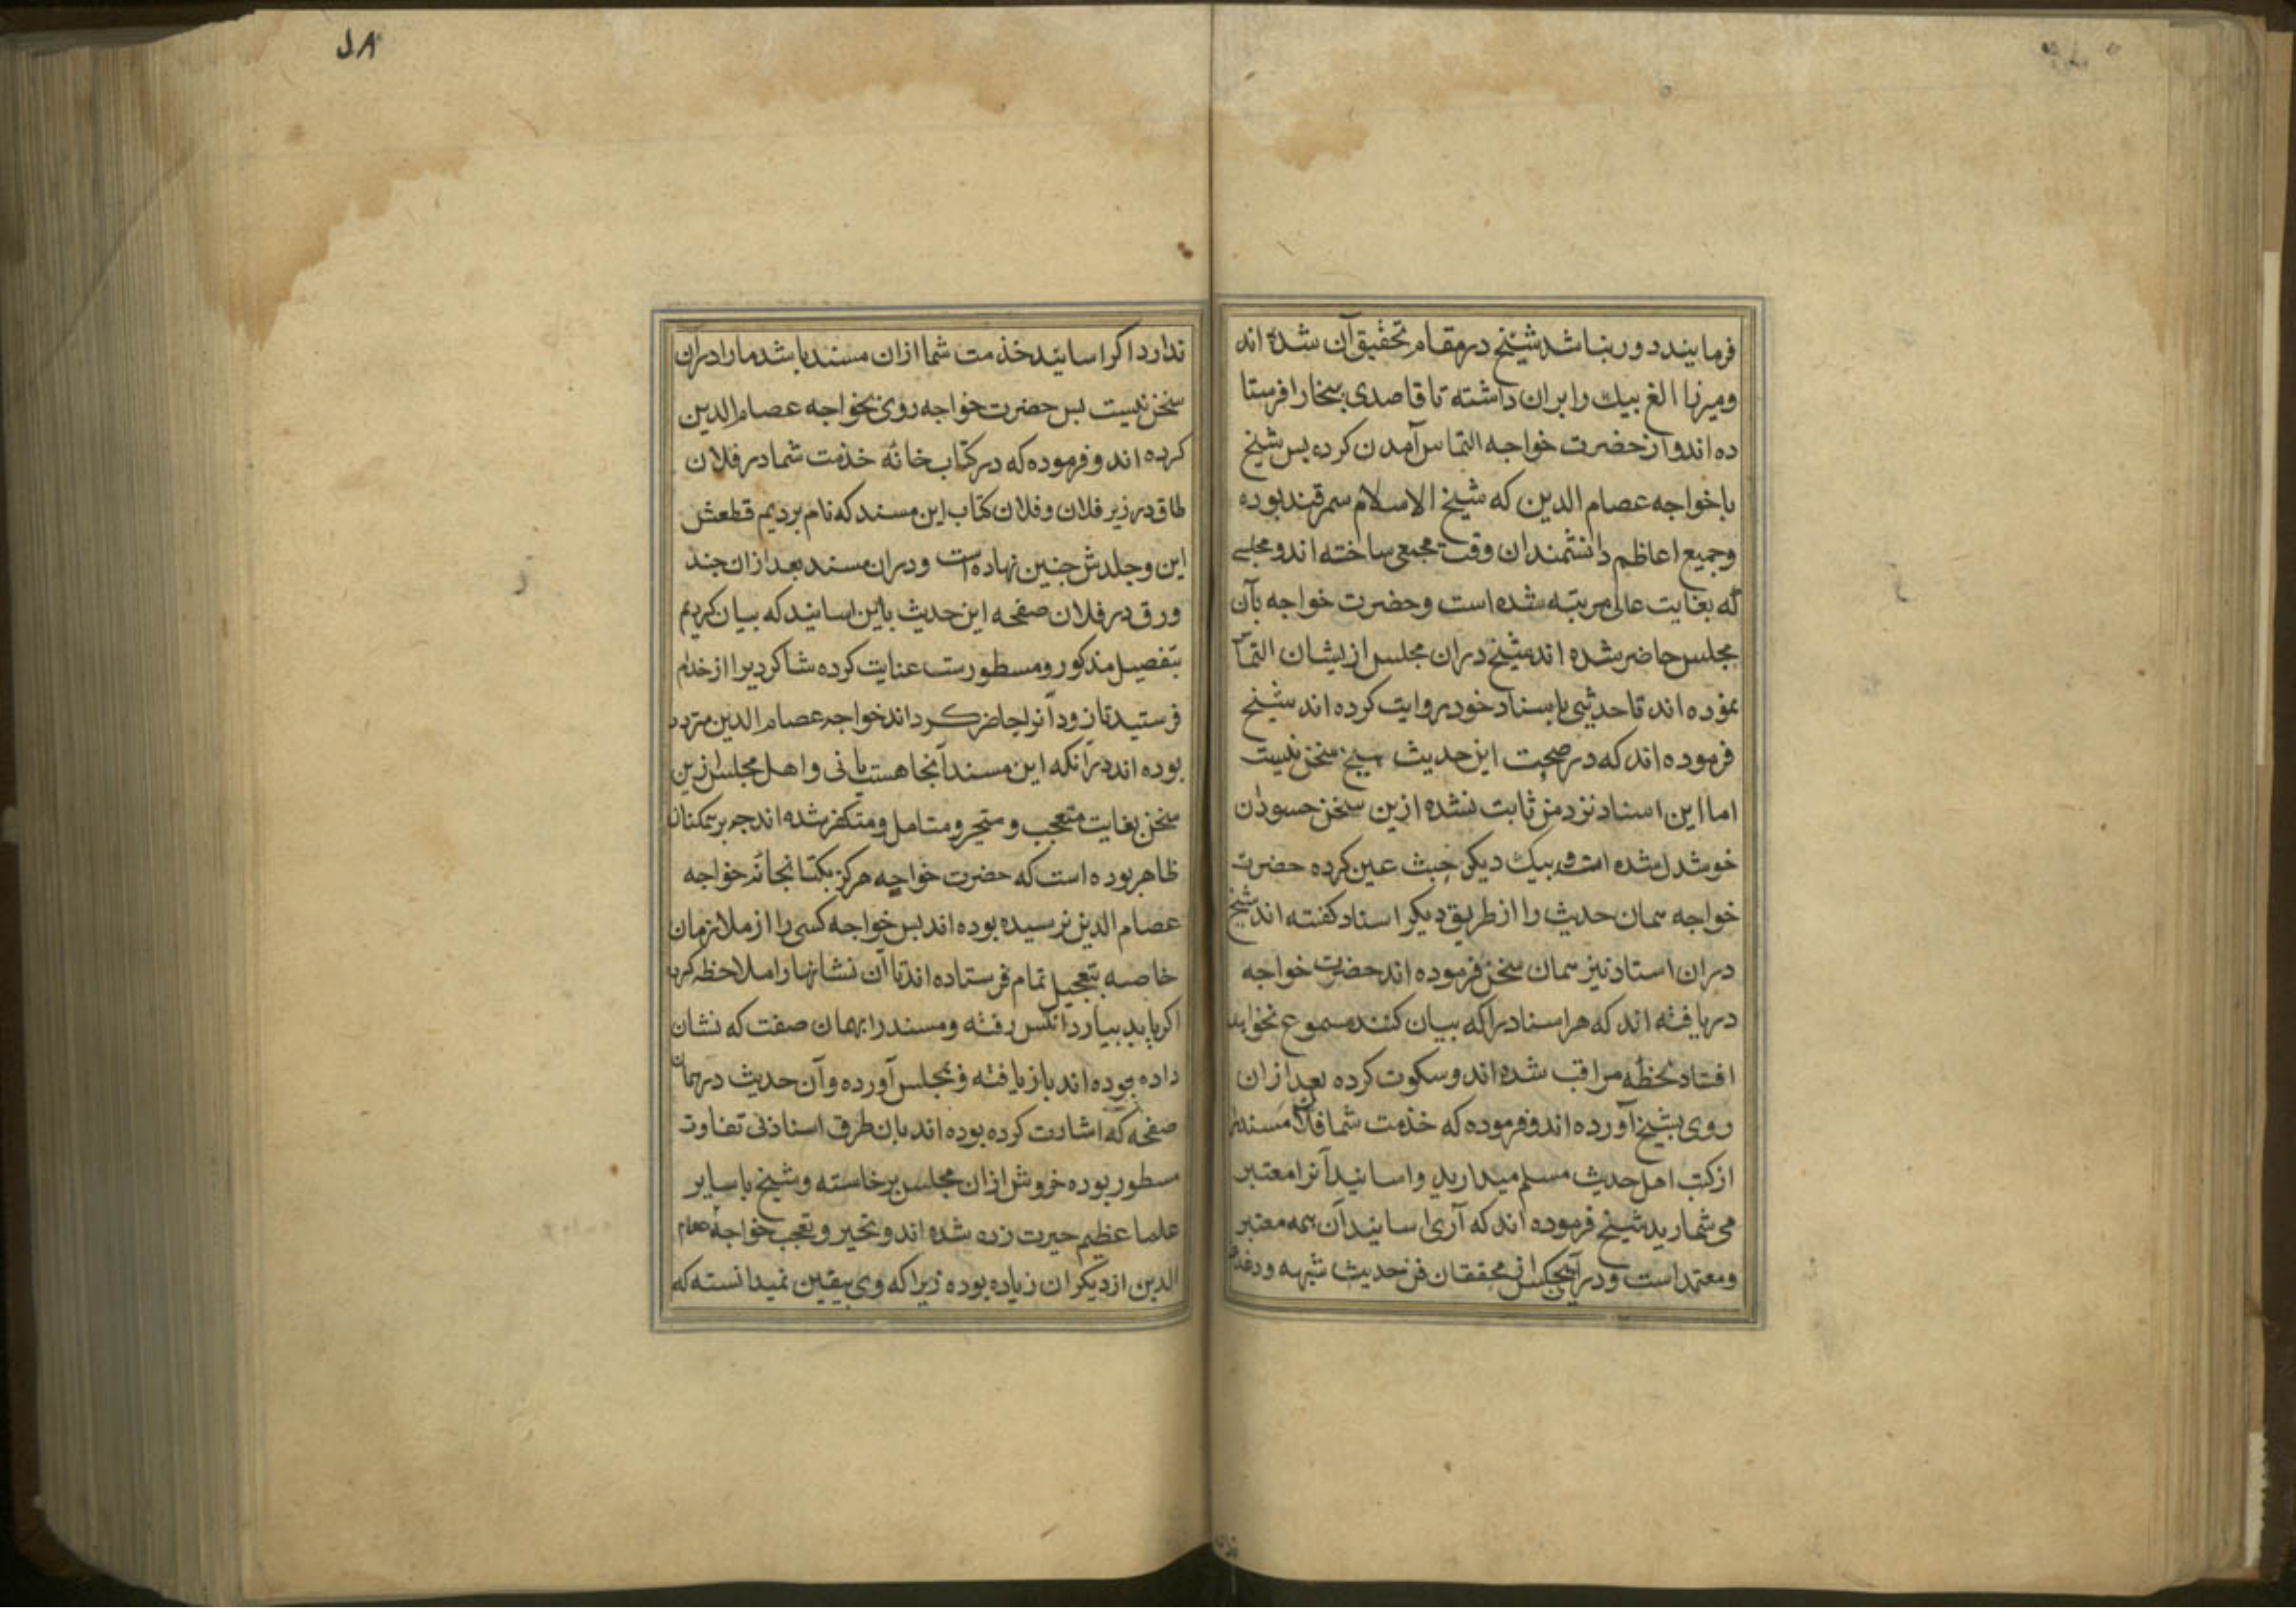 فرمایند دور نباشد شیخ در مقام تحقیق آن شده اند
ومیرزا الغ بیك را بران داشته تا قاصدی ببخارا فرستا
ده اند و از حضرت خواجه التماس آمدن کرده بس شیخ
با خواجه عصام الدین که شیخ الاسلام سمرقند بوده
وجمیع اعاظم دانشمندان وقت مجمعی ساخته اند و مجلسی
که بغایت عالی مرتبه شده است وحضرت خواجه بآن
مجلس حاضر شده اند شیخ دران مجلس ازیشان التماس
نموده اند تا حدیثی باسناد خود روایت کرده اند شیخ
فرموده اند که در صحت این حدیث هیچ سخن نیست
اما این اسناد نزد من ثابت نشده ازین سخن حسودان
خوشدل شده اند و بیك دیکر خبث عین کرده حضرت
خواجه همان حدیث را از طریق دیکر اسناد کفته اند شیخ
دران اسناد نیز همان سخن فرموده اند حضرت خواجه
دریافته اند که هر اسناد را که بیان کنند مسموع نخواهد
افتاد لحظه مراقب شده اند وسکوت کرده بعد ازان
روی بشیخ آورده اند و فرموده که خذمت شما فلان مسند را
از کتب اهل حدیث مسلم میدارید واسانید آنرا معتبر
می شمارید شیخ فرموده اند که آری اسانید آن همه معتبر
ومعتمد است ودر آن هیجکس از محققان فن حدیث شبهه ودغدغه
ندارد اکر اسانید خذمت شما ازان مسند باشد ما را دران
سخن نیست بس حضرت خواجه روی بخواجه عصام الدین
کرده اند و فرموده که در کتاب خانه خذمت شما در فلان
طاق در زیر فلان وفلان کتاب این مسند که نام بردیم قطعش
این وجلدش جنین نهاده است ودران مسند بعد ازان جند
ورق در فلان صفحه این حدیث باین اسانید که بیان کردیم
بتفصیل مذکور و مسطورست عنایت کرده شاکردیرا از خدام
فرستید تا زود آنرا حاضر کرداند خواجه عصام الدین متردد
بوده اند در آنکه این مسند آنجا هست یا نی واهل مجلس ازین
سخن بغایت متعجب و متحیر ومتامل ومتفکر شده اند جه بر همکنان
ظاهر بوده است که حضرت خواجه هرکز بکتابخانه خواجه
عصام الدین نرسیده بوده اند بس خواجه کسی را از ملازمان
خاصه بتعجیل تمام فرستاده اند تا آن نشانها را ملاحظه کرده
اکر یابد بیارد آنکس رفته ومسند را بهمان صفت که نشان
داده بوده اند باز یافته و بمجلس آورده وآن حدیث در همان
صفحه که اشارت کرده بوده اند بان طرق اسناد نی تفاوت
مسطور بوده خروش ازان مجلس برخاسته وشیخ با سایر
علما عظیم حیرت زده شده اند وتحیر وتعجب خواجه عصام
الدین از دیکران زیاده بوده زیرا که وی بیقین نمیدانسته که